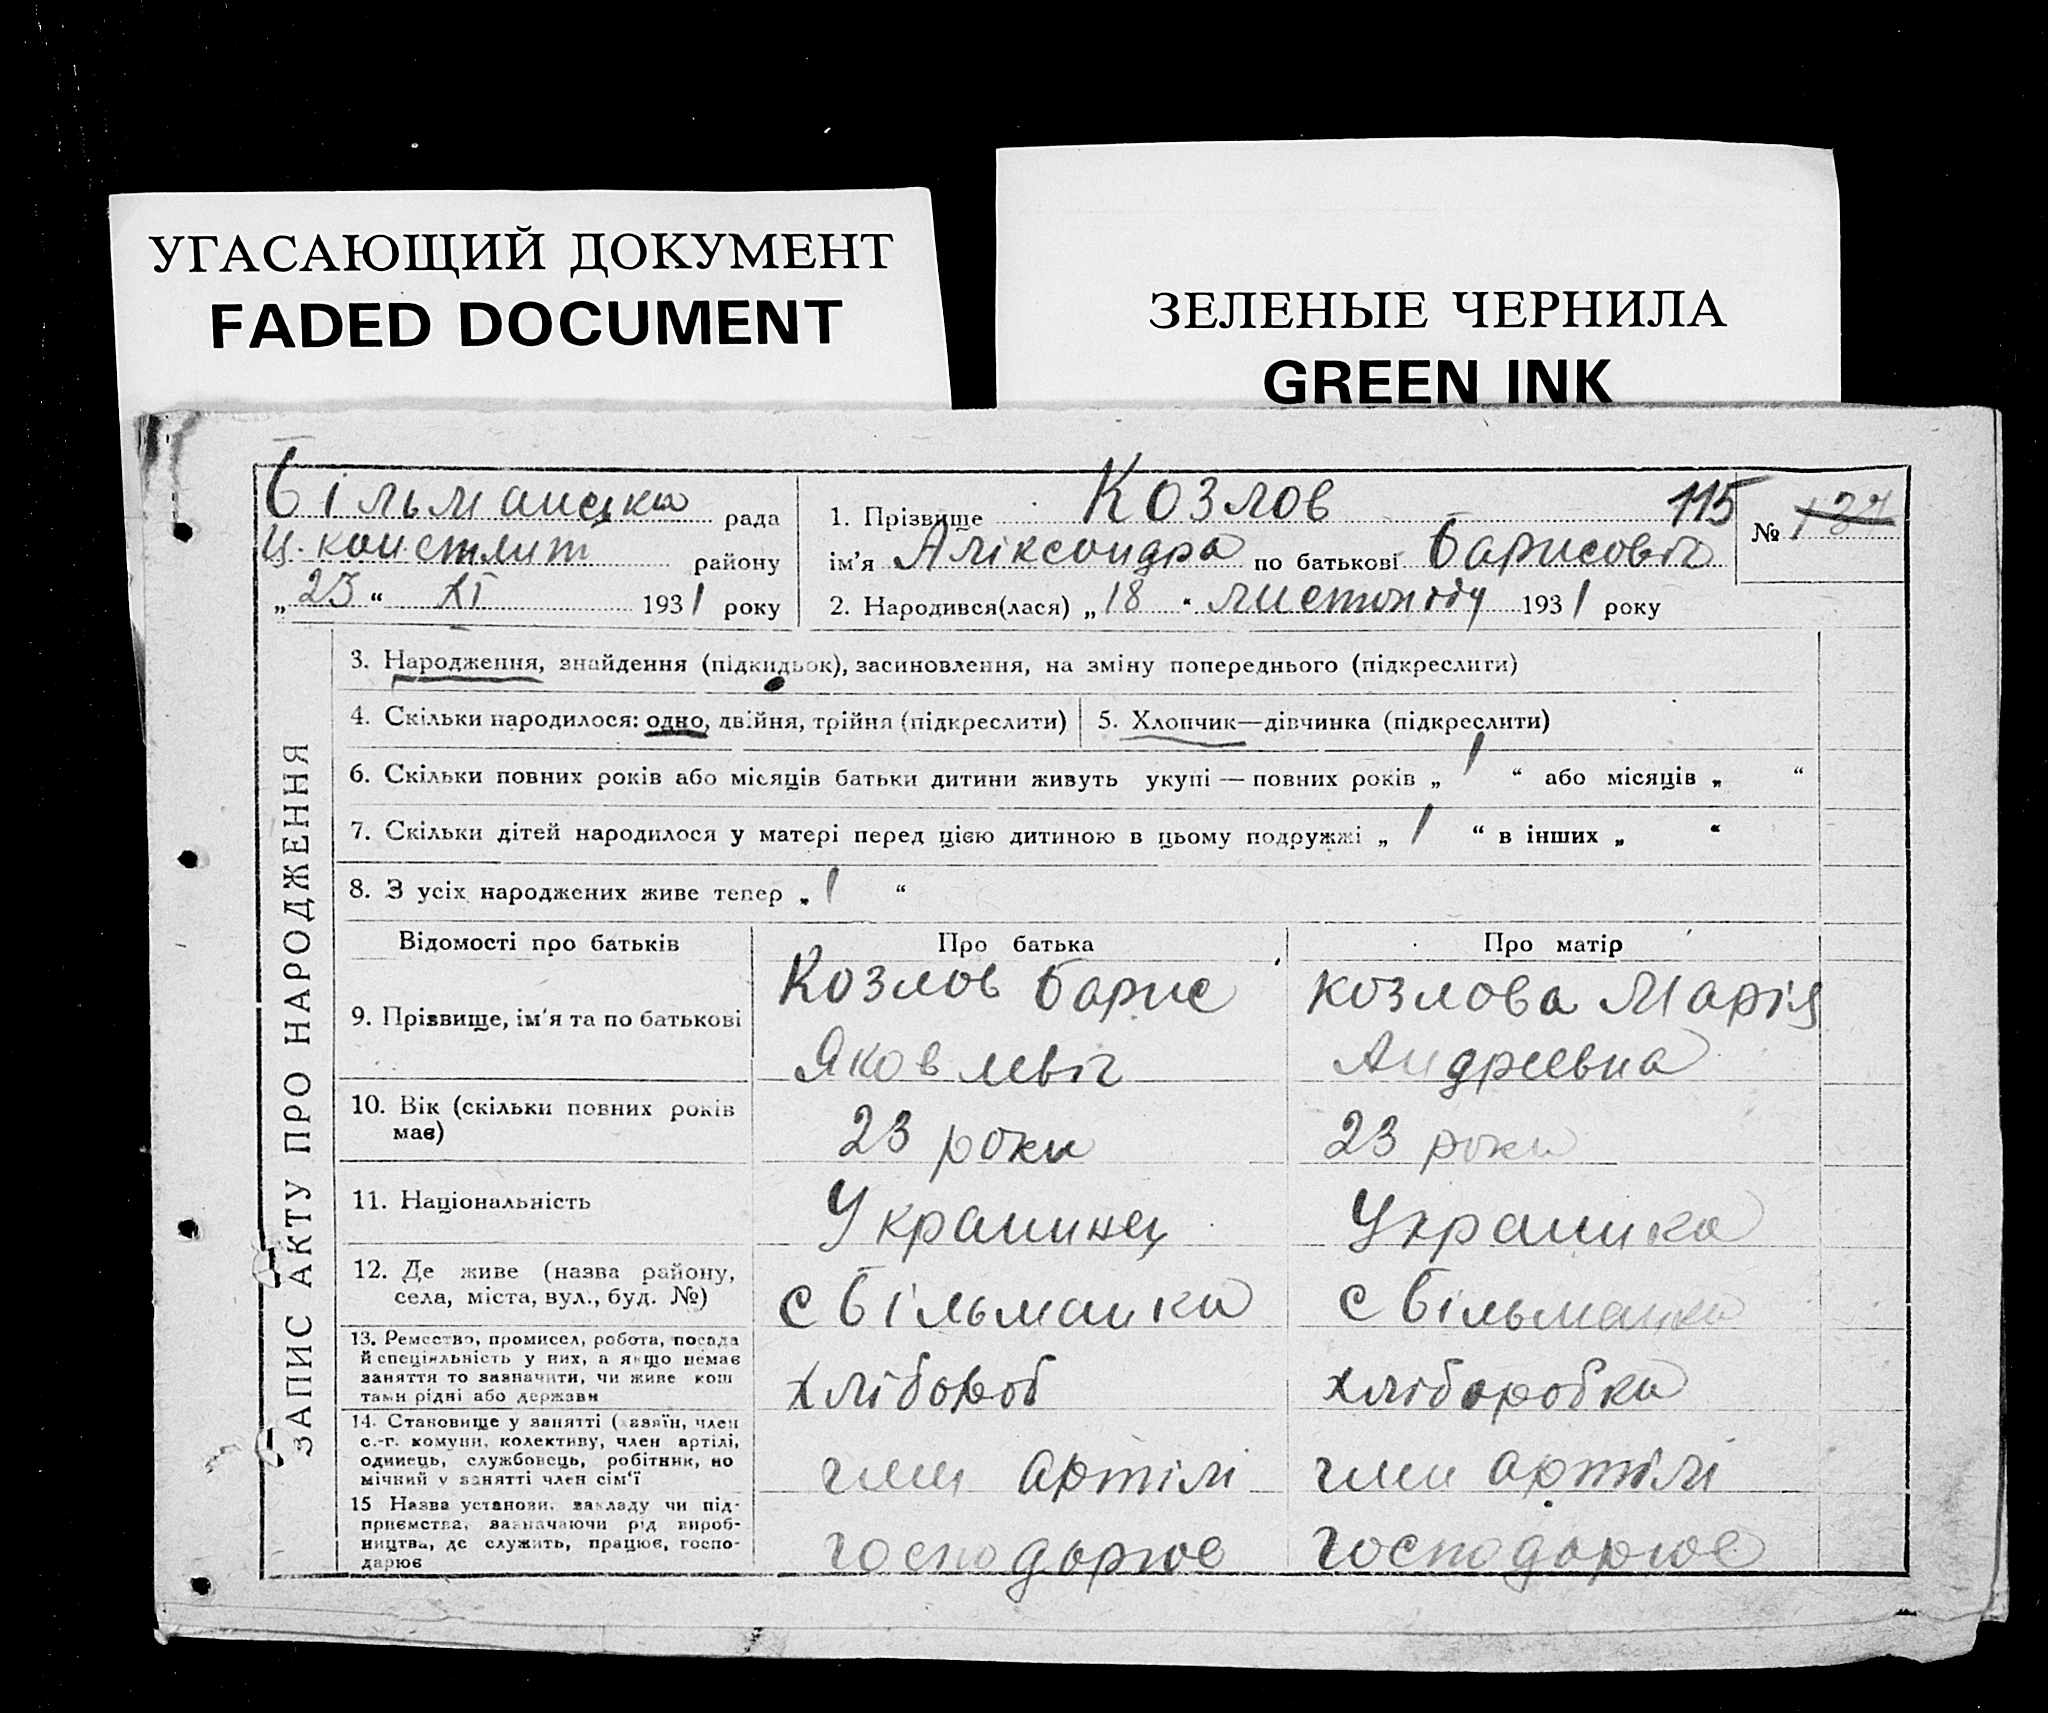 УГАСАЮЩИЙ ДОКУМЕНТ
FADED DOCUMENT
ЗЕЛЕНЫЕ ЧЕРНИЛА
GREEN INK
Більманська рада
Ц. констянт району
„23“ XI 1931 року
1. Прізвище Козлов 115
№ 137
ім'я Аліксандра по батькові Барисовіч
2. Народився(лася) „18“ листопаду 1931 року
ЗАПИС АКТУ ПРО НАРОДЖЕННЯ
3. Народження, знайдення (підкидьок), засиновлення, на зміну попереднього (підкреслити)
4. Скільки народилося: одно, двійня, трійня (підкреслити)
5. Хлопчик—дівчинка (підкреслити)
6. Скільки повних років або місяців батьки дитини живуть укупі — повних років „1“ або місяців „ “
7. Скільки дітей народилося у матері перед цією дитиною в цьому подружжі „1“ в інших „ “
8. З усіх народжених живе тепер „1“
Відомості про батьків Про батька Про матір
9. Прізвище, ім'я та по батькові
Козлов Барис
Яковлевіч
козлова Марія
Андреевна
10. Вік (скільки повних років
має)
23 роки
23 роки
11. Національність
Украинец
Украинка
12. Де живе (назва району,
села, міста, вул., буд. №)
с Більманка
с Більманка
13. Ремество, промисел, робота, посада
й спеціяльність у них, а якщо немає
заняття то зазначити, чи живе кош
тами рідні або держави
хлібороб
хліборобка
14. Становище у занятті (хазяїн, член
с.-г. комуни, колективу, член артілі,
одинець, службовець, робітник, по
мічний у занятті член сім'ї
член артілі
член артілі
15 Назва установи, закладу чи під-
приємства, зазначаючи рід вироб-
ництва, де служить, працює, госпо-
дарює
господарює
господарює